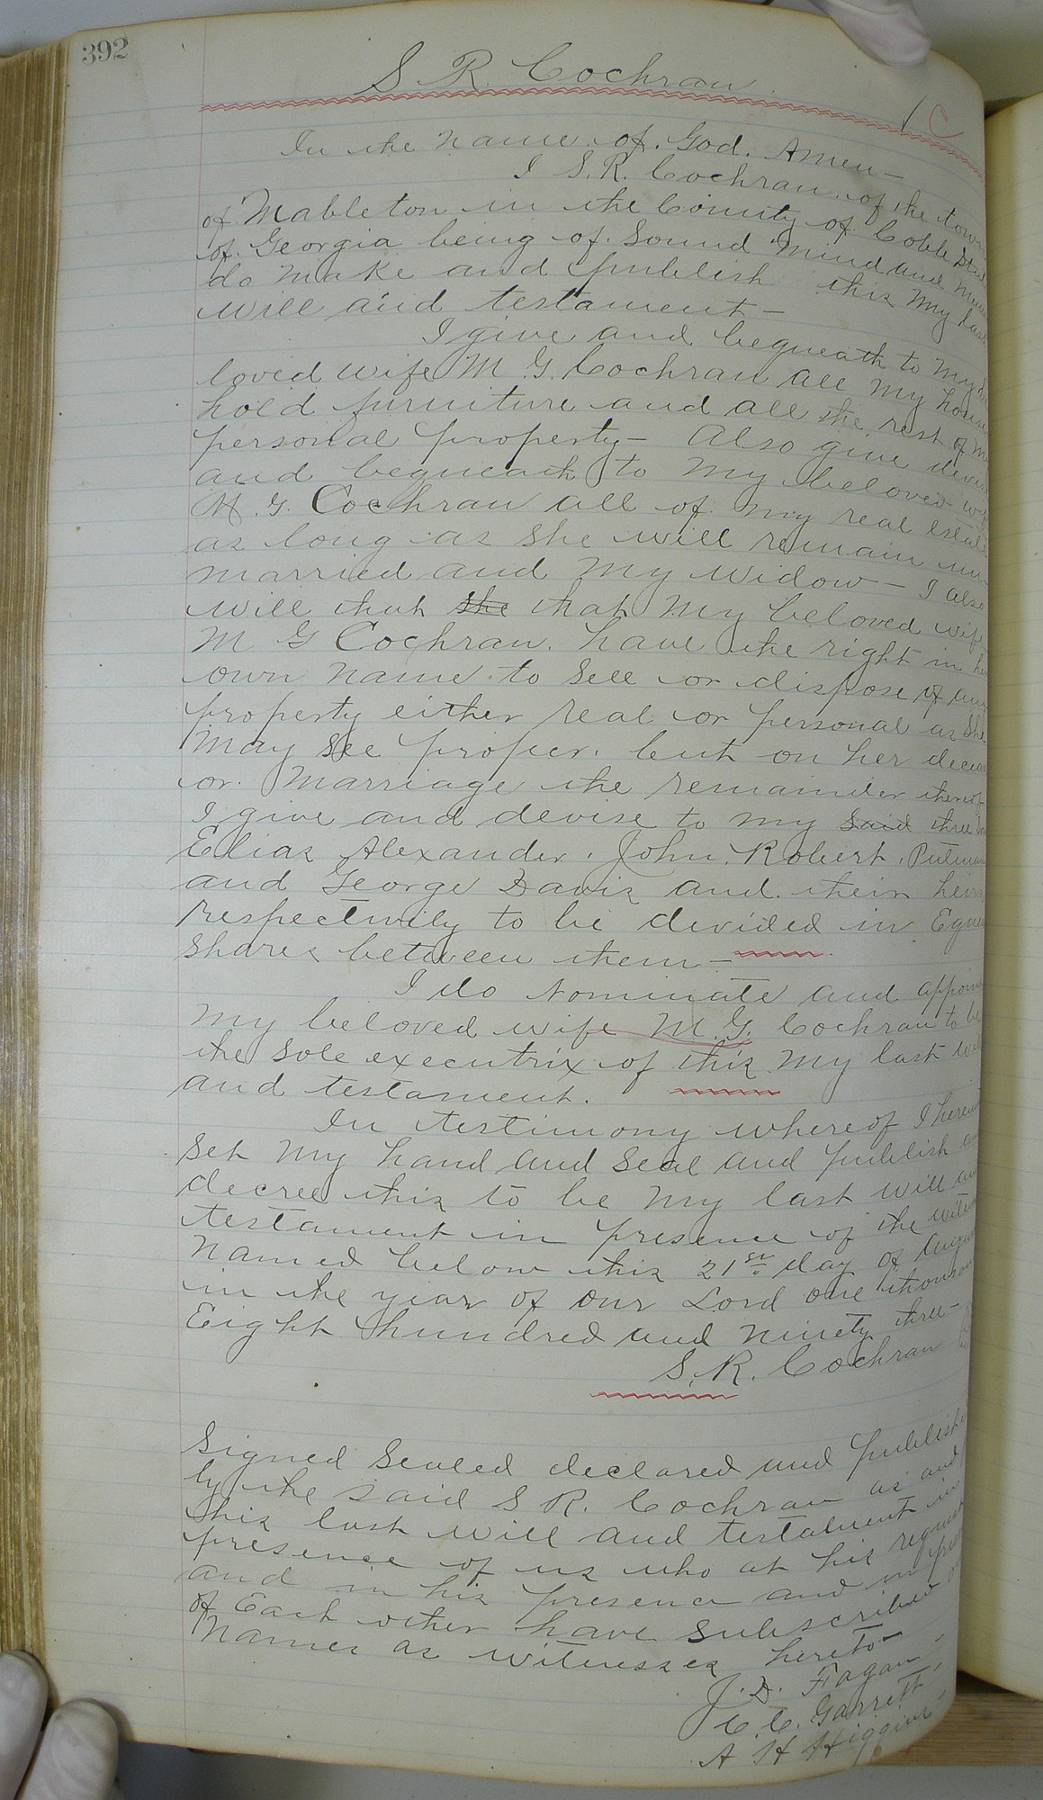 392
S R. Cochran.
1 C
In the name of God. Amen—
I S.R. Cochran of the town
of Mableton in the County of Cobb State
of Georgia being of Sound Mind and
do make and publish this My last
will and testament—
I give and bequeath to My
loved wife M G. Cochran all My house
hold furniture and all the rest of My
personal property— Also give devise
and bequeath to My beloved wife
M. G. Cochran all of my real Estate
as long as she will remain un
married and My widow— I also
will that she that My beloved wife
M G Cochran. have the right in her
own name to sell or dispose of any
property either real or personal as She
May See proper. but on her
or Marriage the remainder thereof
I give and devise to my Said three
Elias Alexander. John Robert.
and George Davis and their heirs
respectivily to be devided in Equal
Shares between them—
I do Nominate and appoint
My beloved wife M. G. Cochran to be
the sole executrix of this My last will
and testament.
In testimony whereof I
Set My hand and Seal and publish and
decree this to be My last will and
testament in presence of the
Named below this 21st day of August
in the year of our Lord one thousand
Eight hundred and Ninety three—
S. R. Cochran
Signed Sealed declared and
by the said S R. Cochran as and
his last will and testament in
presence of us who at his request
and in his presence and in
of Each other have Subscribed
Names as witnesses hereto—
J. D. Fagan—
C. C. Garrett—
A H Higgins—